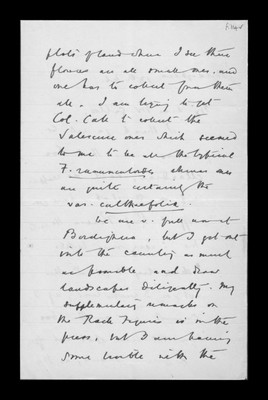 plots of land where I see these
flowers are all ones. and
one has to collect from them
all. I am trying to get
Col. to collect the
ones which seemed
to me to be all the typical
F. ranunculoides whereas ones
are quite certainly the
var. calthaefolia.
We are v. full up at
Bordighera, but I get out
into the country as much
as possible and draw
landscapes diligently. My
supplementary remarks on
the Rock is in the
press, but I am having
some trouble with the